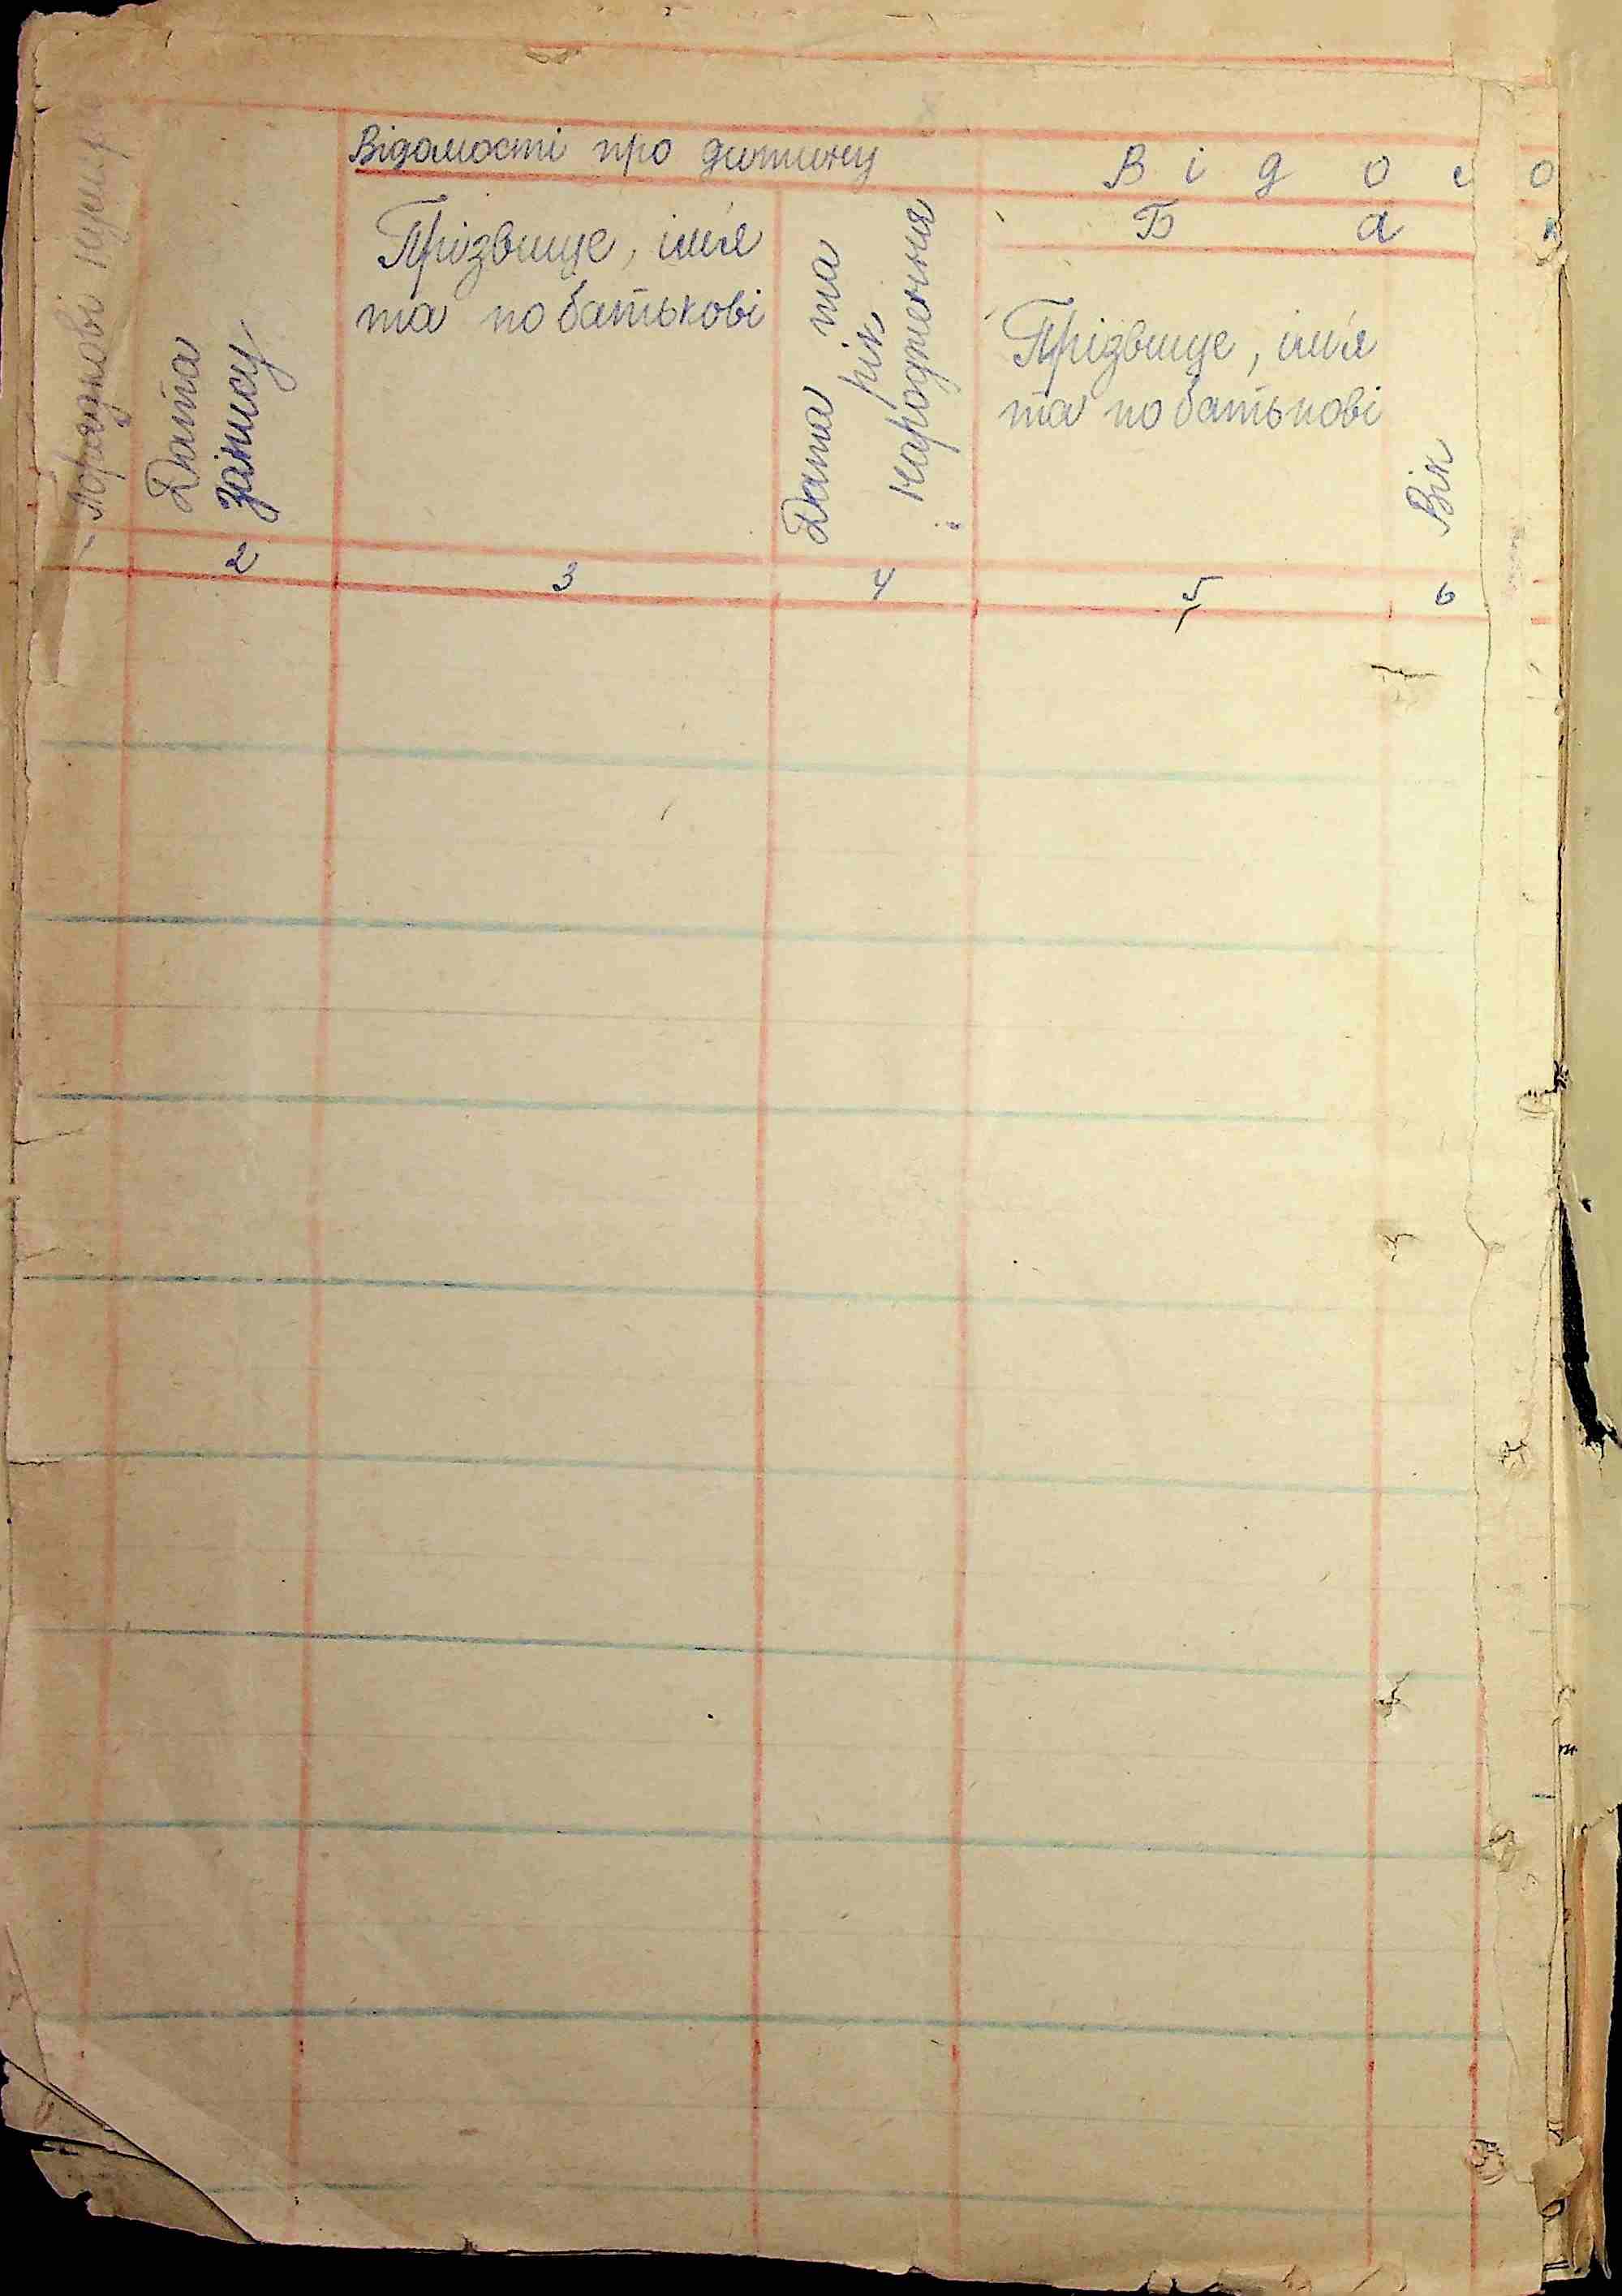 Порядкові нумер
Дата
запису
Відомості про дитину
Прізвище, ім'я
та по батькові
Дата та
рік
народження
В і д о м о
Б а
Прізвище, ім'я
та по батькові
Вік
2 3 4 5 6